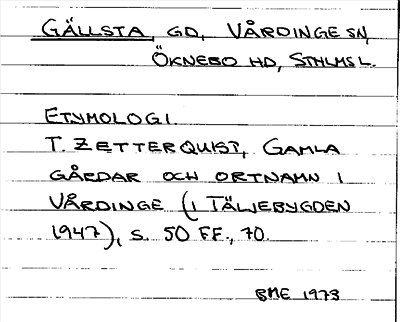 GÄLLSTA, GD, VÅRDINGE SN,
ÖKNEBO HD, STHLMS L.
ETYMOLOGI
T. ZETTERQUIST, GAMLA
GÅRDAR OCH ORTNAMN I
VÅRDINGE (I TÄLJEBYGDEN
1947), S. 50 FF., 70.
BME 1973